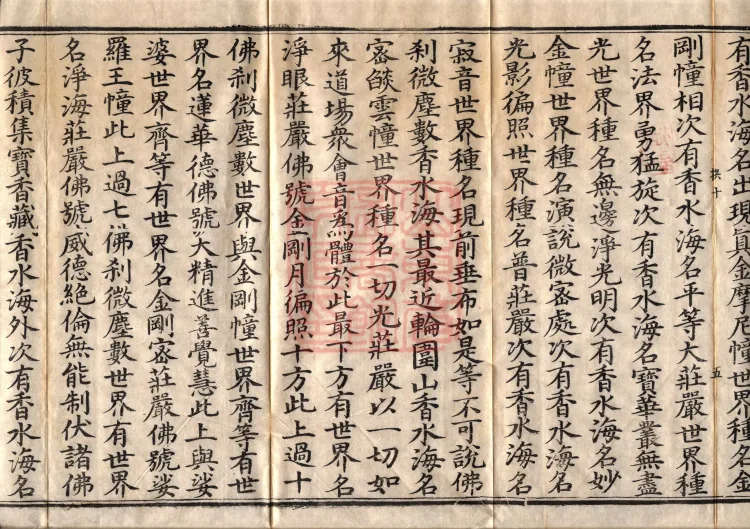 有香水海名出現眞金摩尼幢世界種名金
剛幢相次有香水海名平等大莊嚴世界種
名法界勇猛旋次有香水海名寶華叢無盡
光世界種名無邊淨光明次有香水海名妙
金幢世界種名演說微宻處次有香水海名
光影徧照世界種名普莊嚴次有香水海名
寂音世界種名現前垂布如是等不可說佛
刹微塵數香水海其最近輪圍山香水海名
宻燄雲幢世界種名一切光莊嚴以一切如
來道場衆會音爲體於此最下方有世界名
淨眼莊嚴佛號金剛月徧照十方此上過十
佛刹微塵數世界與金剛幢世界齊等有世
界名蓮華德佛號大精進善覺慧此上與娑
婆世界齊等有世界名金剛宻莊嚴佛號娑
羅王幢此上過七佛刹微塵數世界有世界
名淨海莊嚴佛號威德絕倫無能制伏諸佛
子彼積集寶香藏香水海外次有香水海名
拱十
五